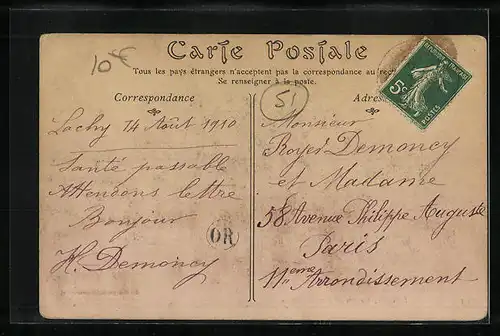 10€
Carte Postale
Tous les pays étrangers n'acceptent pas la correspondance au recto
Se renseigner à la poste.
51
Correspondance
Lachy 14 Août 1910
Santé passable
Attendons lettre
Bonjour
H. Demoncy
OR
Adres
Monsieur
Royer Demoncy
et Madame
58 Avenue Philippe Auguste
Paris
11ème Arrondissement
5c
POSTES